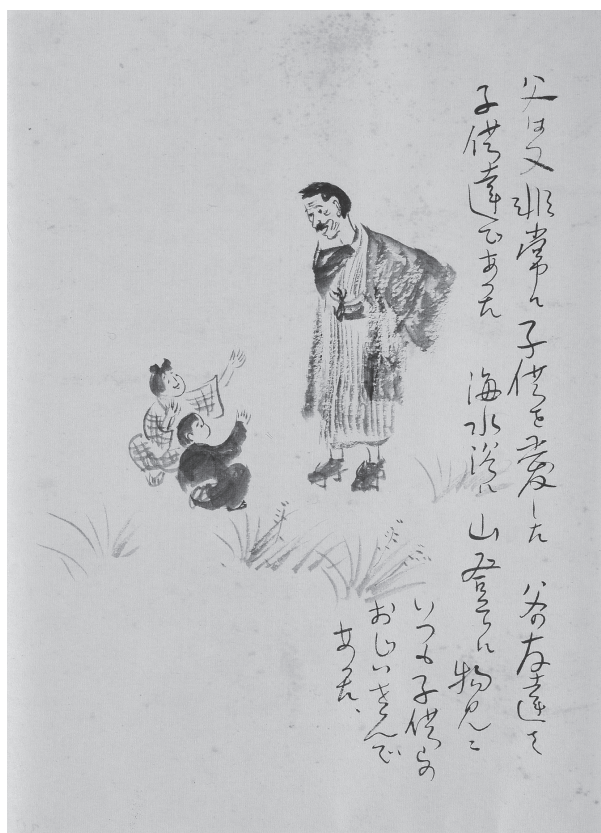 父は又非常に子供を愛した 父の友達も
子供達であった 海水浴に山登りに物見に
いつも子供の
おじいさんで
あった、